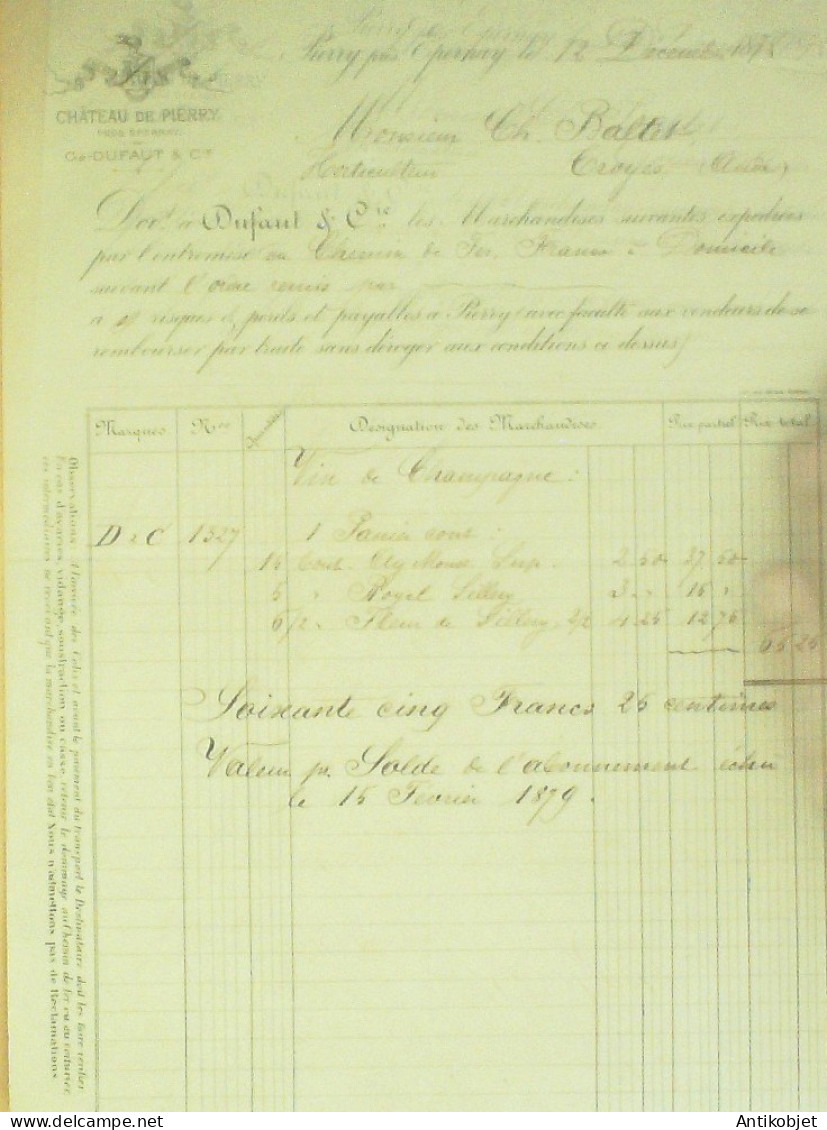 Pierry près Epernay le 12 Décembre 1878
CHÂTEAU DE PIERRY
PRÈS EPERNAY
Ce DUFAUT & Cie
Monsieur Ch. Baltet
Horticulteur Troyes (Aube)
Doit à Dufaut & Cie les Marchandises suivantes expédiées
par l'entremise du Chemin de Fer, Franco à Domicile
suivant l'ordre remis par
à risques & périls et payables à Pierry (avec faculté aux vendeurs de se
rembourser par traite sans déroger aux conditions ci dessus)
Marques Nos Désignation des Marchandises Prix partiel Prix total
Vin de Champagne :
D & C 1327 1 Panier cont :
15 bout. Aÿ Mouss. Sup. 2 50 37 50
5 " Royal Sillery 3 " 15 "
6/2 " Fleur de Sillery 2/2 4 25 12 75
65 25
Soixante cinq Francs 25 centimes
Valeur pr. Solde de l'abonnement échu
le 15 Février 1879.
Observations. A l'arrivée des Colis et avant le paiement du transport le Destinataire doit les faire vérifier
En cas d'avaries, vidange, soustraction ou casse, retenir le dommage au Chemin de fer ou au voiturier
ces intermédiaires ne recevant que la marchandise en bon état Nous n'admettons pas de Réclamations
Antikobjet - delcampe.net